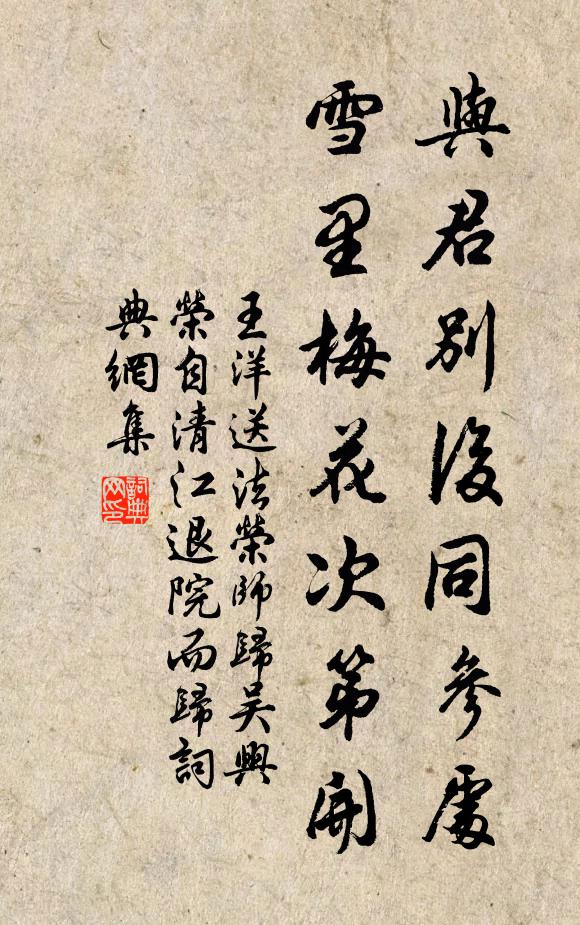 與君別後同參處
雪里梅花次第開
王洋送法榮師歸吳興
榮自清江退院而歸詞
典網集
詞典網印